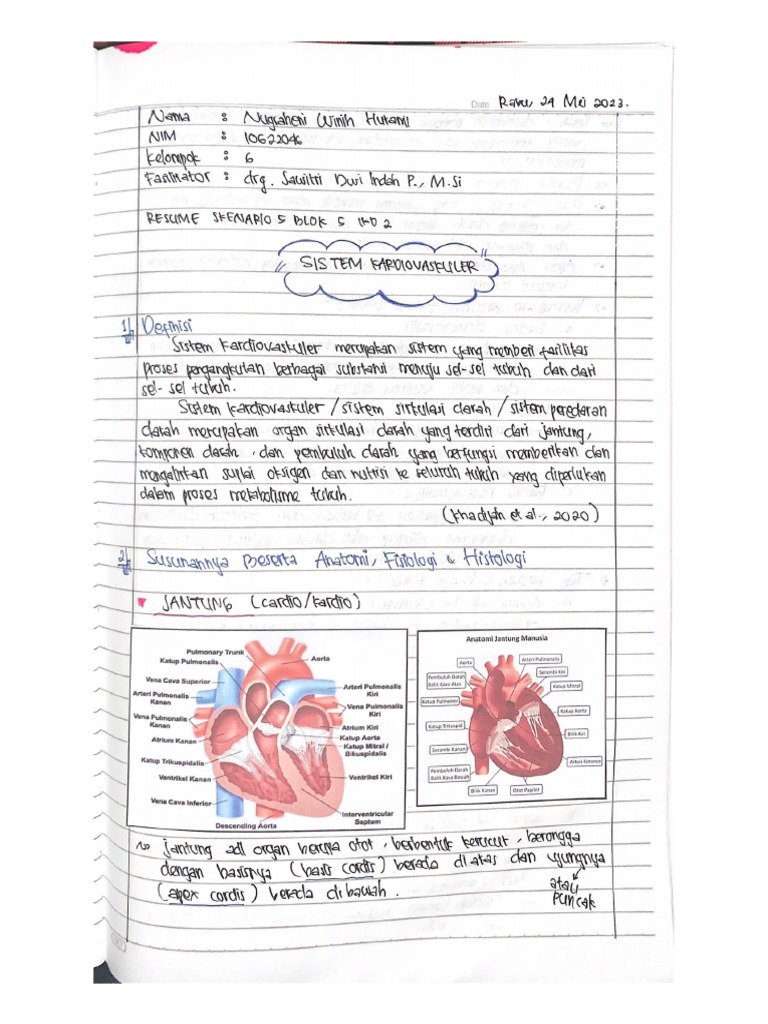 Date Rabu, 24 Mei 2023.
Nama : Nugraheni Winih Hutami
NIM : 10622046
Kelompok : 6
Fasilitator : drg. Sawitri Dwi Indah P., M.Si
RESUME SKENARIO 5 BLOK 5 IKD 2
SISTEM KARDIOVASKULER
1/ Definisi
Sistem Kardiovaskuler merupakan sistem yang memberi fasilitas
proses pengangkutan berbagai substansi menuju sel-sel tubuh dan dari
sel-sel tubuh.
Sistem kardiovaskuler / sistem sirkulasi darah / sistem peredaran
darah merupakan organ sirkulasi darah yang terdiri dari jantung,
komponen darah, dan pembuluh darah yang berfungsi memberikan dan
mengalirkan suplai oksigen dan nutrisi ke seluruh tubuh yang diperlukan
dalam proses metabolisme tubuh.
(Khadijah et al., 2020)
2/ Susunannya Beserta Anatomi, Fisiologi & Histologi
JANTUNG (cardio/kardio)
Pulmonary Trunk
Katup Pulmonalis
Vena Cava Superior
Arteri Pulmonalis
Kanan
Vena Pulmonalis
Kanan
Atrium Kanan
Katup Trikuspidalis
Ventrikel Kanan
Vena Cava Inferior
Descending Aorta
Aorta
Arteri Pulmonalis
Kiri
Vena Pulmonalis
Kiri
Atrium Kiri
Katup Aorta
Katup Mitral /
Bikuspidalis
Ventrikel Kiri
Interventricular
Septum
Anatomi Jantung Manusia
Aorta
Pembuluh Darah
Balik Kava Atas
Katup Pulmoner
Katup Trikuspid
Serambi Kanan
Pembuluh Darah
Balik Kava Bawah
Bilik Kanan
Otot Papiler
Arteri Pulmonalis
Serambi Kiri
Katup Mitral
Katup Aorta
Bilik Kiri
Arteri Koroner
jantung adl organ berupa otot, berbentuk kerucut, berongga
dengan basisnya (basis cordis) berada di atas dan ujungnya
(apex cordis) berada di bawah.
atau
puncak